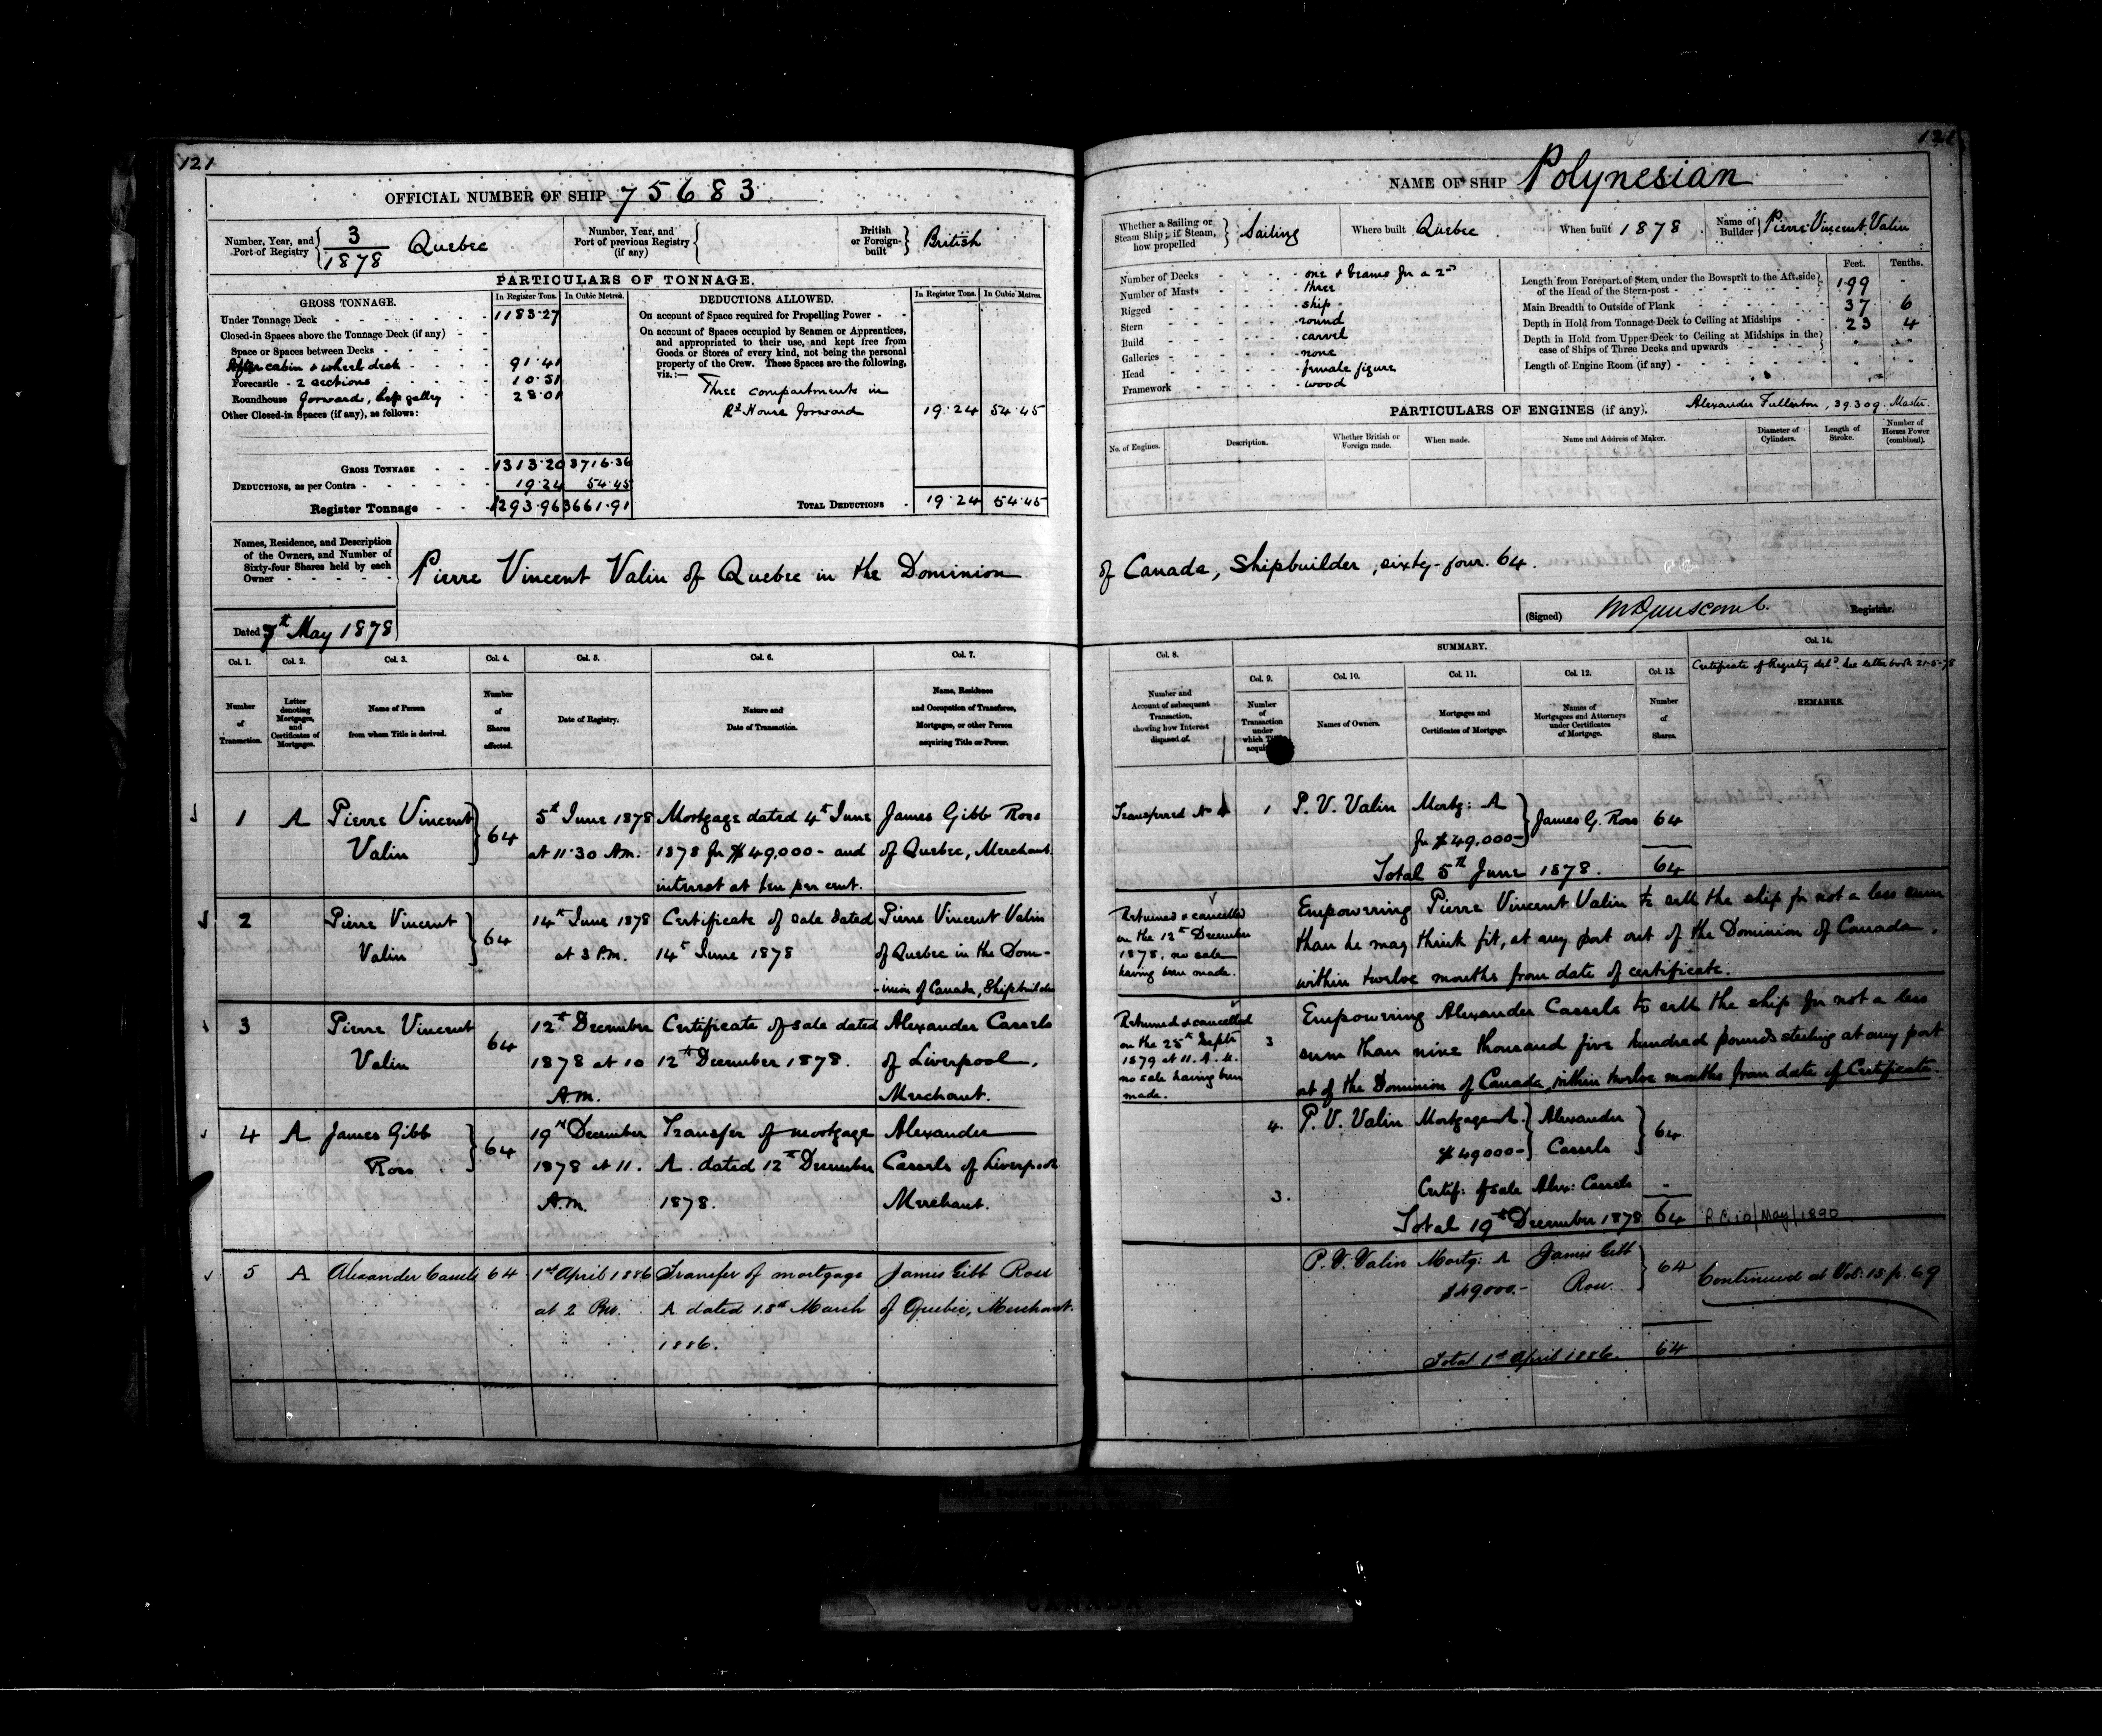 121
OFFICIAL NUMBER OF SHIP 75683
Number, Year, and Port of Registry 3/1878 Quebec
Number, Year, and Port of previous Registry (if any)
British or Foreign-built British
PARTICULARS OF TONNAGE.
GROSS TONNAGE. In Register Tons. In Cubic Metres.
Under Tonnage Deck 1183.27
Closed-in Spaces above the Tonnage Deck (if any)
Space or Spaces between Decks
After cabin & wheel deck 91.41
Forecastle - 2 sections 10.51
Roundhouse forward, galley 28.01
Other Closed-in Spaces (if any), as follows:
GROSS TONNAGE 1313.20 3716.36
DEDUCTIONS, as per Contra 19.24 54.45
Register Tonnage 1293.96 3661.91
DEDUCTIONS ALLOWED. In Register Tons. In Cubic Metres.
On account of Space required for Propelling Power
On account of Spaces occupied by Seamen or Apprentices,
and appropriated to their use, and kept free from
Goods or Stores of every kind, not being the personal
property of the Crew. These Spaces are the following,
viz.:—
Three compartments in
Rd House forward 19.24 54.45
TOTAL DEDUCTIONS 19.24 54.45
Names, Residence, and Description
of the Owners, and Number of
Sixty-four Shares held by each
Owner
Pierre Vincent Valin of Quebec in the Dominion
Dated 7th May 1878
Col. 1. Col. 2. Col. 3. Col. 4. Col. 5. Col. 6. Col. 7.
Number of Transaction.
Letter denoting Mortgages, and Certificates of Mortgages.
Name of Person from whom Title is derived.
Number of Shares affected.
Date of Registry.
Nature and Date of Transaction.
Name, Residence and Occupation of Transferee, Mortgagee, or other Person acquiring Title or Power.
1 A Pierre Vincent 64 5th June 1878 Mortgage dated 4th June James Gibb Ross
Valin at 11.30 A.M. 1878 for $49,000- and of Quebec, Merchant.
interest at ten per cent.
2 Pierre Vincent 64 14th June 1878 Certificate of sale dated Pierre Vincent Valin
Valin at 3 P.M. 14th June 1878 of Quebec in the Dom-
-inion of Canada, Shipbuilder
3 Pierre Vincent 64 12th December Certificate of sale dated Alexander Cassels
Valin 1878 at 10 12th December 1878. of Liverpool,
A.M. Merchant.
4 A James Gibb 64 19th December Transfer of mortgage Alexander
Ross 1878 at 11. A. dated 12th December Cassels of Liverpool
A.M. 1878. Merchant.
5 A Alexander Cassels 64 1st April 1886 Transfer of mortgage James Gibb Ross
at 2 P.M. A dated 18th March of Quebec, Merchant.
1886.
121
NAME OF SHIP Polynesian
Whether a Sailing or Steam Ship; if Steam, how propelled Sailing
Where built Quebec
When built 1878
Name of Builder Pierre Vincent Valin
Number of Decks one & beams for a 2nd
Number of Masts three
Rigged ship
Stern round
Build carvel
Galleries none
Head female figure
Framework wood
Feet. Tenths.
Length from Forepart of Stem, under the Bowsprit to the Aft side
of the Head of the Stern-post 199 -
Main Breadth to Outside of Plank 37 6
Depth in Hold from Tonnage Deck to Ceiling at Midships 23 4
Depth in Hold from Upper Deck to Ceiling at Midships in the
case of Ships of Three Decks and upwards
Length of Engine Room (if any)
PARTICULARS OF ENGINES (if any). Alexander Fullerton, 39.309. Master.
No. of Engines. Description. Whether British or Foreign made. When made. Name and Address of Maker. Diameter of Cylinders. Length of Stroke. Number of Horses Power (combined).
of Canada, Shipbuilder, sixty-four. 64.
(Signed) Registrar.
Col. 8. SUMMARY. Col. 14.
Col. 9. Col. 10. Col. 11. Col. 12. Col. 13.
Certificate of Registry deld. See letter book 21-5-78
Number and Account of subsequent Transaction, showing how Interest disposed of.
Number of Transaction under which
Names of Owners.
Mortgages and Certificates of Mortgage.
Names of Mortgagees and Attorneys under Certificates of Mortgage.
Number of Shares.
REMARKS.
Transferred 1 P. V. Valin Mortg: A James G. Ross 64
for $49,000-
Total 5th June 1878. 64
Returned & cancelled
on the 12th December
1878, no sale
having been made.
Empowering Pierre Vincent Valin to sell the ship for not a less sum
than he may think fit, at any port out of the Dominion of Canada,
within twelve months from date of certificate.
Returned & cancelled
on the 25th Septr
1879 at 11. A.M.
no sale having been
made.
3 Empowering Alexander Cassels to sell the ship for not a less
sum than nine thousand five hundred pounds sterling at any port
out of the Dominion of Canada, within twelve months from date of Certificate.
4. P. V. Valin Mortgage A. Alexander 64
$49000- Cassels
3. Certif: of sale Alex: Cassels -
Total 19th December 1878 64 R.C. 10/May/1890
P. V. Valin Mortg: A James Gibb 64
$49000.- Ross
Continued at Vol: 15 p. 69
Total 1st April 1886. 64